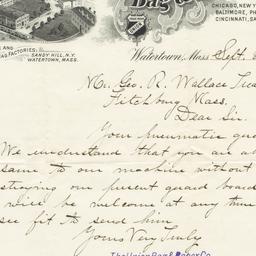 Bag
CHICAGO, NEW Y
BALTIMORE, PH
CINCINNATI, SA
AND
AG FACTORIES:
SANDY HILL, N.Y.
WATERTOWN, MASS.
Watertown, Mass Sept.
Mr. Geo. R. Wallace Trea
Fitchburg Mass.
Dear Sir.
Your pneumatic gua
We understand that you are a
same to our machine without
straying our present guard boar
will be welcome at any tim
see fit to send him
Yours Very Truly
The Union Bag & Paper Co.